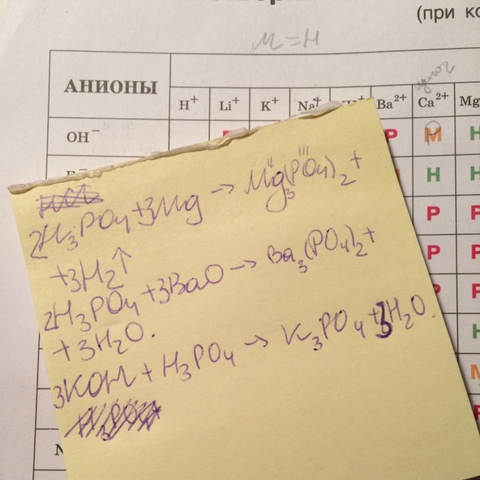 (при ко
М = Н
АНИОНЫ
H⁺ Li⁺ K⁺ Na⁺ Ba²⁺ Ca²⁺ Mg
OH⁻ Р М Н
Н Н
Р Р
Р Р
Р Р
2H₃PO₄ + 3Mg → Mg₃(PO₄)₂ +
+ 3H₂↑
2H₃PO₄ + 3BaO → Ba₃(PO₄)₂ +
+ 3H₂O.
3KOH + H₃PO₄ → K₃PO₄ + 3H₂O.
Н
М
Р